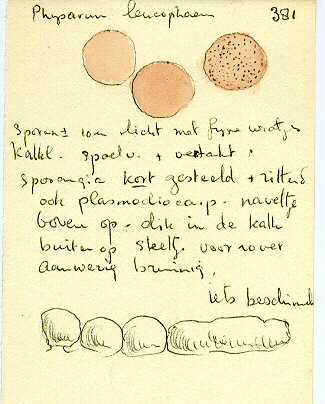 Physarum leucophaeum 381
Sporen ± 10 m licht met fijne wratjes
Kalkl. spoelv. + vertakt.
Sporangia kort gesteeld + zittend
ook plasmodiocarp. naveltje
boven op. dik in de kalk
buiten op steeltje voor zover
aanwezig bruinig.
iets beschimmeld